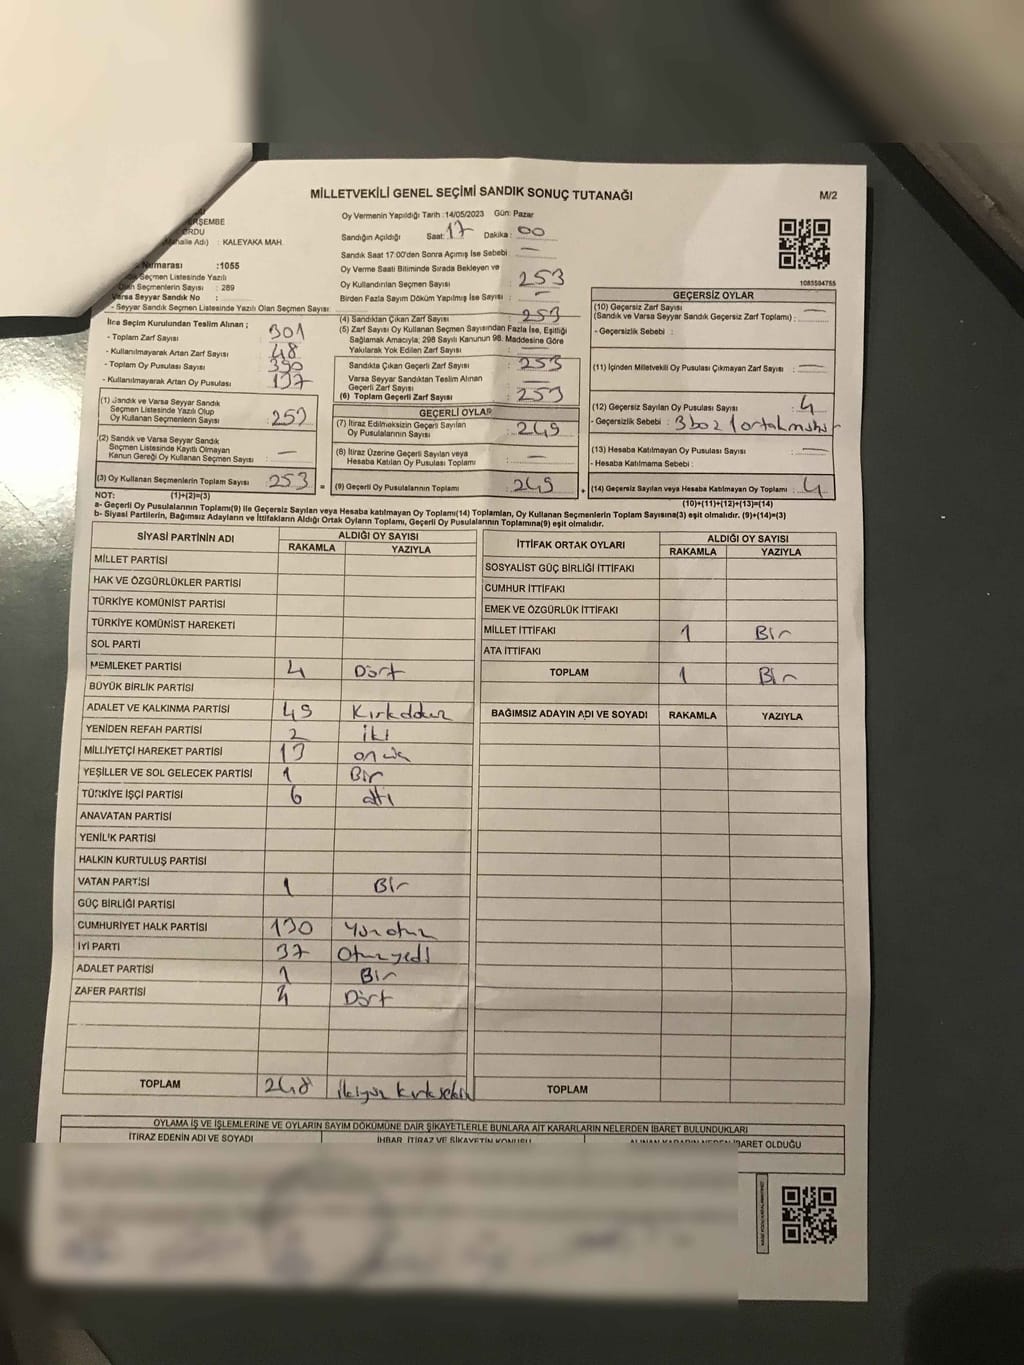 MİLLETVEKİLİ GENEL SEÇİMİ SANDIK SONUÇ TUTANAĞI
M/2
RŞEMBE
ORDU
Mahalle Adı) : KALEYAKA MAH.
Numarası :1055
Seçmen Listesinde Yazılı
Olan Seçmenlerin Sayısı : 289
Varsa Seyyar Sandık No :
- Seyyar Sandık Seçmen Listesinde Yazılı Olan Seçmen Sayısı :
Oy Vermenin Yapıldığı Tarih :14/05/2023 Gün: Pazar
Sandığın Açıldığı Saat: 17 Dakika: 00
Sandık Saat 17:00'den Sonra Açımış İse Sebebi : —
Oy Verme Saati Bitiminde Sırada Bekleyen ve
Oy Kullandırılan Seçmen Sayısı : 253
Birden Fazla Sayım Döküm Yapılmış İse Sayısı : —
1085504755
İlçe Seçim Kurulundan Teslim Alınan ;
- Toplam Zarf Sayısı : 301
- Kullanılmayarak Artan Zarf Sayısı : 48
- Toplam Oy Pusulası Sayısı : 390
- Kullanılmayarak Artan Oy Pusulası : 137
(1) Sandık ve Varsa Seyyar Sandık
Seçmen Listesinde Yazılı Olup
Oy Kullanan Seçmenlerin Sayısı : 253
(2) Sandık ve Varsa Seyyar Sandık
Seçmen Listesinde Kayıtlı Olmayan
Kanun Gereği Oy Kullanan Seçmen Sayısı : —
(3) Oy Kullanan Seçmenlerin Toplam Sayısı : 253
(4) Sandıktan Çıkan Zarf Sayısı : 253
(5) Zarf Sayısı Oy Kullanan Seçmen Sayısından Fazla İse, Eşitliği
Sağlamak Amacıyla; 298 Sayılı Kanunun 98. Maddesine Göre
Yakılarak Yok Edilen Zarf Sayısı : —
Sandıkta Çıkan Geçerli Zarf Sayısı : 253
Varsa Seyyar Sandıktan Teslim Alınan
Geçerli Zarf Sayısı : —
(6) Toplam Geçerli Zarf Sayısı : 253
GEÇERLİ OYLAR
(7) İtiraz Edilmeksizin Geçerli Sayılan
Oy Pusulalarının Sayısı : 249
(8) İtiraz Üzerine Geçerli Sayılan veya
Hesaba Katılan Oy Pusulası Toplamı : —
= (9) Geçerli Oy Pusulalarının Toplamı : 249
GEÇERSİZ OYLAR
(10) Geçersiz Zarf Sayısı
(Sandık ve Varsa Seyyar Sandık Geçersiz Zarf Toplamı) : —
- Geçersizlik Sebebi :
(11) İçinden Milletvekili Oy Pusulası Çıkmayan Zarf Sayısı : —
(12) Geçersiz Sayılan Oy Pusulası Sayısı : 4
- Geçersizlik Sebebi : 3 boz 1 ortak mühür
(13) Hesaba Katılmayan Oy Pusulası Sayısı : —
- Hesaba Katılmama Sebebi :
+ (14) Geçersiz Sayılan veya Hesaba Katılmayan Oy Toplamı : 4
NOT: (1)+(2)=(3)
(10)+(11)+(12)+(13)=(14)
a- Geçerli Oy Pusulaları Toplamı(9) ile Geçersiz Sayılan veya Hesaba katılmayan Oy Toplamı(14) Toplamları, Oy Kullanan Seçmenlerin Toplam Sayısına(3) eşit olmalıdır. (9)+(14)=(3)
b- Siyasi Partilerin, Bağımsız Adayların ve İttifakların Aldığı Ortak Oyların Toplamı, Geçerli Oy Pusulalarının Toplamına(9) eşit olmalıdır.
SİYASİ PARTİNİN ADI
ALDIĞI OY SAYISI
RAKAMLA YAZIYLA
MİLLET PARTİSİ
HAK VE ÖZGÜRLÜKLER PARTİSİ
TÜRKİYE KOMÜNİST PARTİSİ
TÜRKİYE KOMÜNİST HAREKETİ
SOL PARTİ
MEMLEKET PARTİSİ 4 Dört
BÜYÜK BİRLİK PARTİSİ
ADALET VE KALKINMA PARTİSİ 49 Kırkdokuz
YENİDEN REFAH PARTİSİ 2 İki
MİLLİYETÇİ HAREKET PARTİSİ 13 on üç
YEŞİLLER VE SOL GELECEK PARTİSİ 1 Bir
TÜRKİYE İŞÇİ PARTİSİ 6 altı
ANAVATAN PARTİSİ
YENİLİK PARTİSİ
HALKIN KURTULUŞ PARTİSİ
VATAN PARTİSİ 1 Bir
GÜÇ BİRLİĞİ PARTİSİ
CUMHURİYET HALK PARTİSİ 130 Yüzotuz
İYİ PARTİ 37 Otuzyedi
ADALET PARTİSİ 1 Bir
ZAFER PARTİSİ 4 Dört
TOPLAM 248 ikiyüz kırksekiz
İTTİFAK ORTAK OYLARI
ALDIĞI OY SAYISI
RAKAMLA YAZIYLA
SOSYALİST GÜÇ BİRLİĞİ İTTİFAKI
CUMHUR İTTİFAKI
EMEK VE ÖZGÜRLÜK İTTİFAKI
MİLLET İTTİFAKI 1 Bir
ATA İTTİFAKI
TOPLAM 1 Bir
BAĞIMSIZ ADAYIN ADI VE SOYADI RAKAMLA YAZIYLA
TOPLAM
OYLAMA İŞ VE İŞLEMLERİNE VE OYLARIN SAYIM DÖKÜMÜNE DAİR ŞİKAYETLERLE BUNLARA AİT KARARLARIN NELERDEN İBARET BULUNDUKLARI
İTİRAZ EDENİN ADI VE SOYADI
İHBAR, İTİRAZ VE ŞİKAYETİN KONUSU
ALINAN KARARIN NEDEN İBARET OLDUĞU